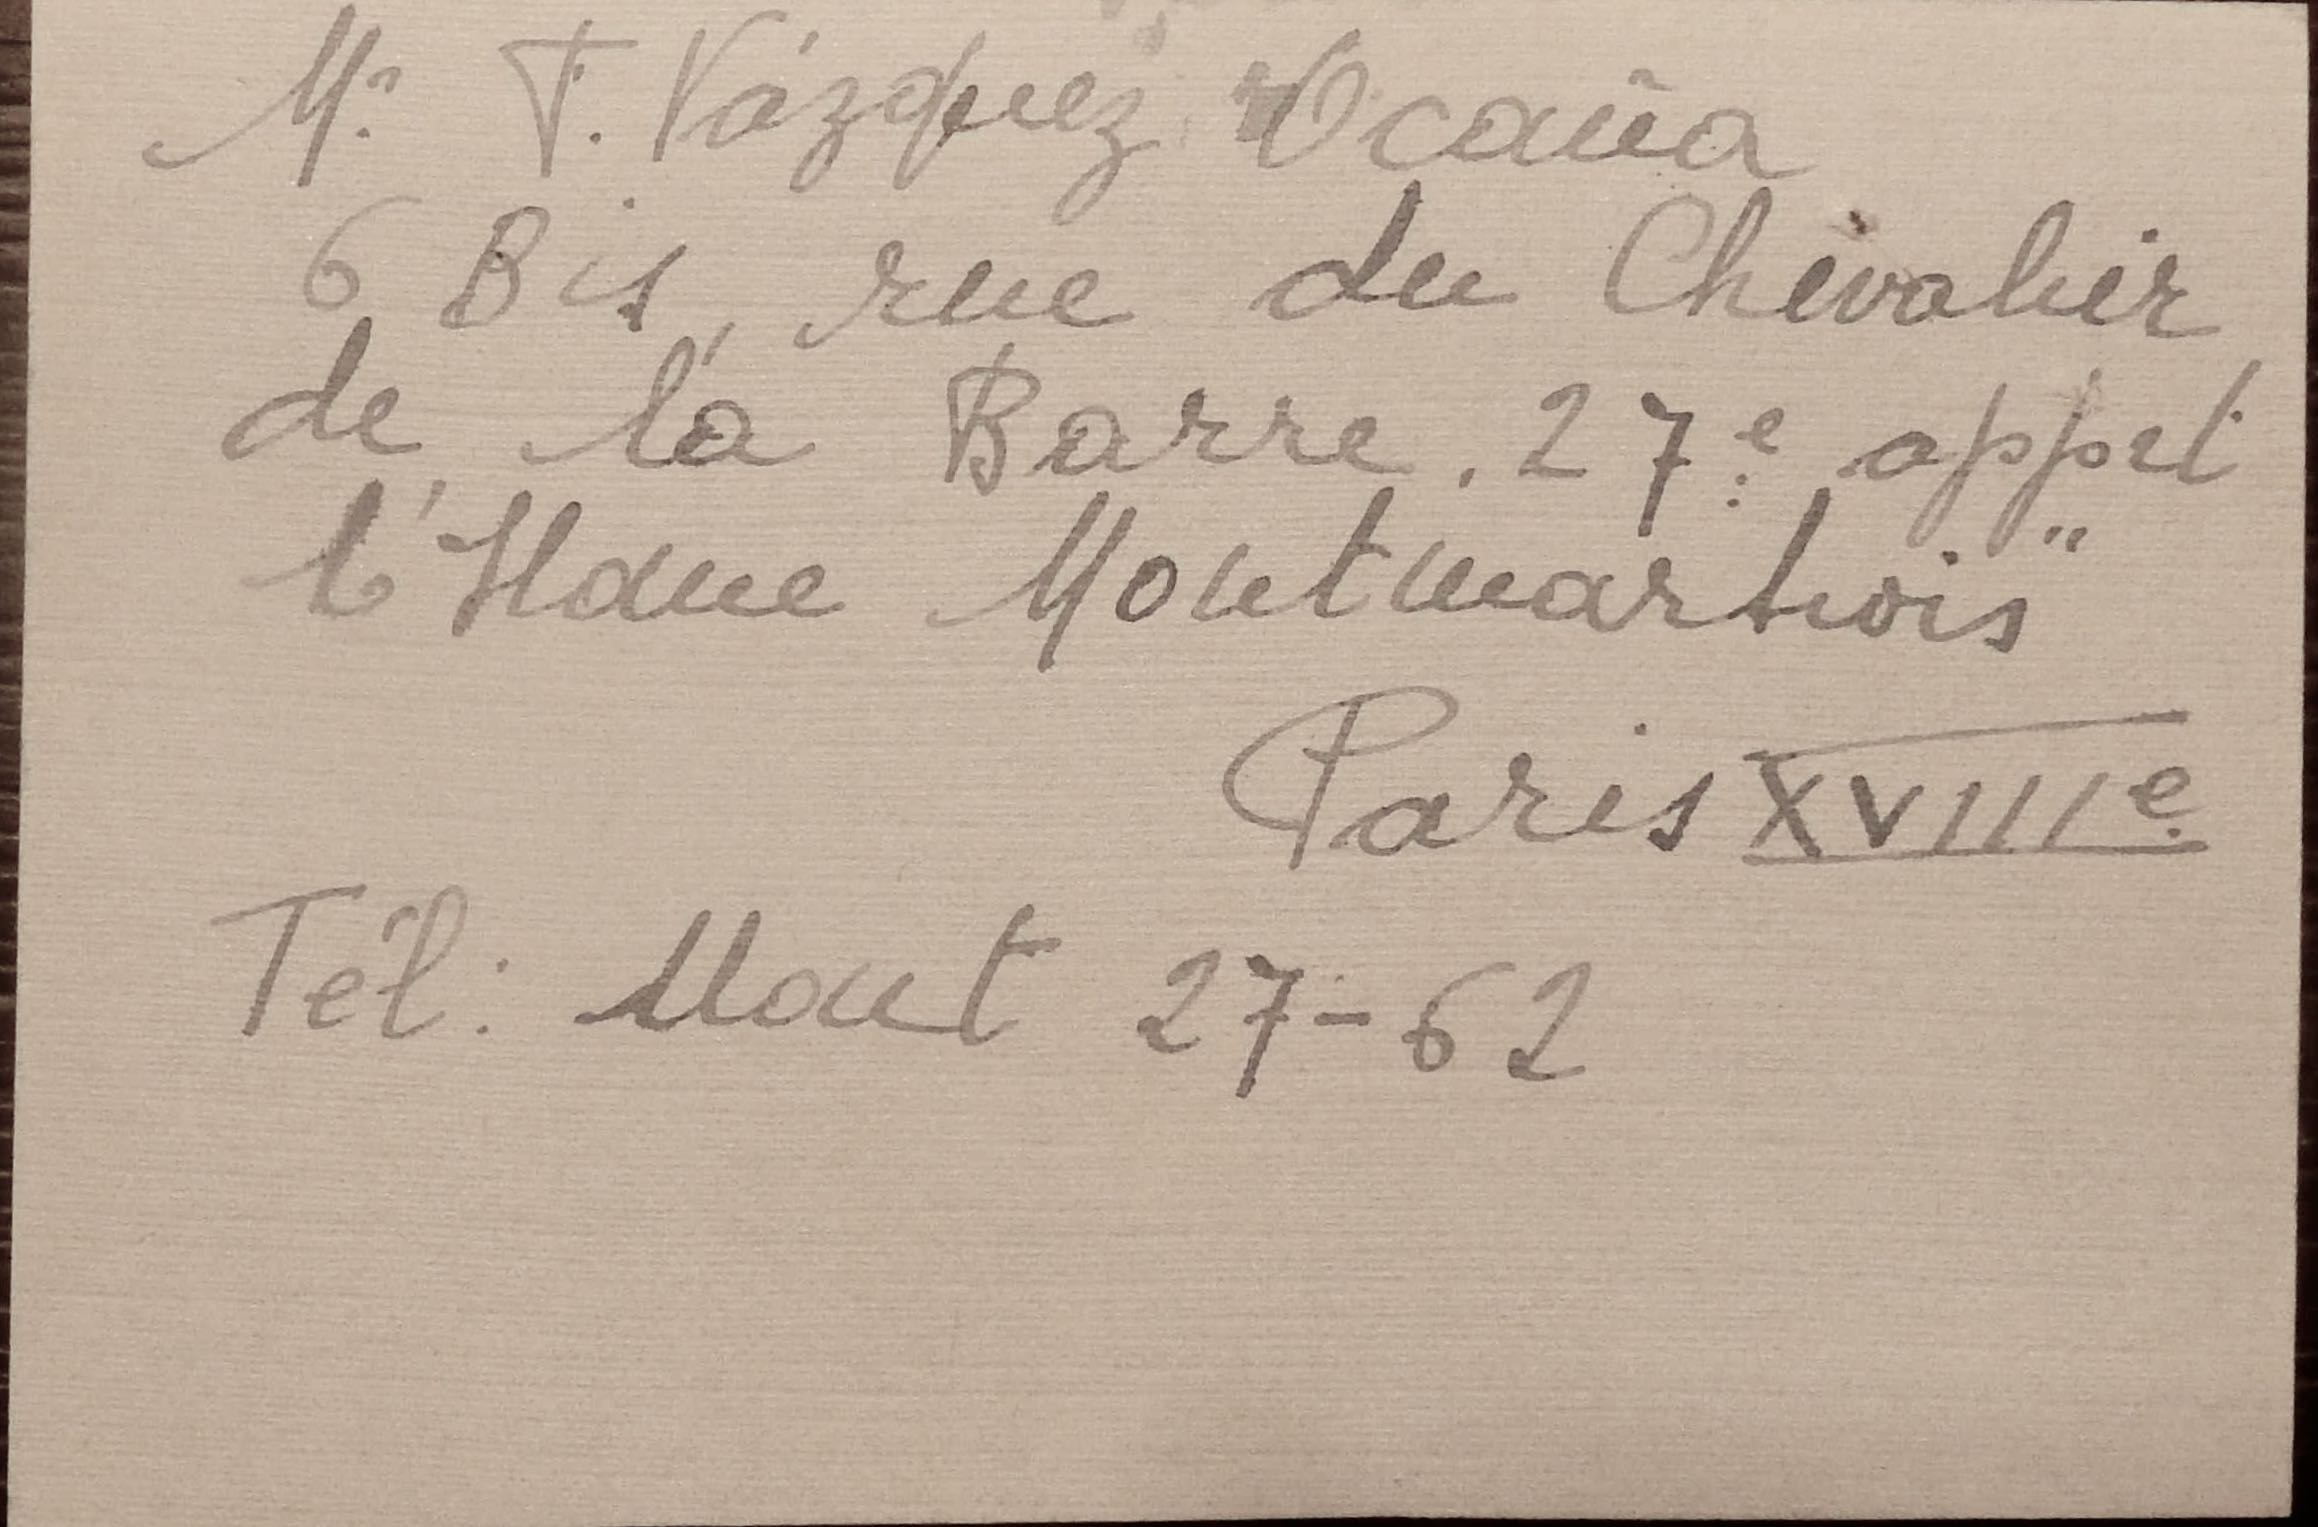 Mr. F. Vázquez Ocaña
6 Bis, rue du Chevalier
de la Barre. 27e appet
"l'Ilane Montmartrois"
Paris XVIIIe
Tél: Mont 27-62